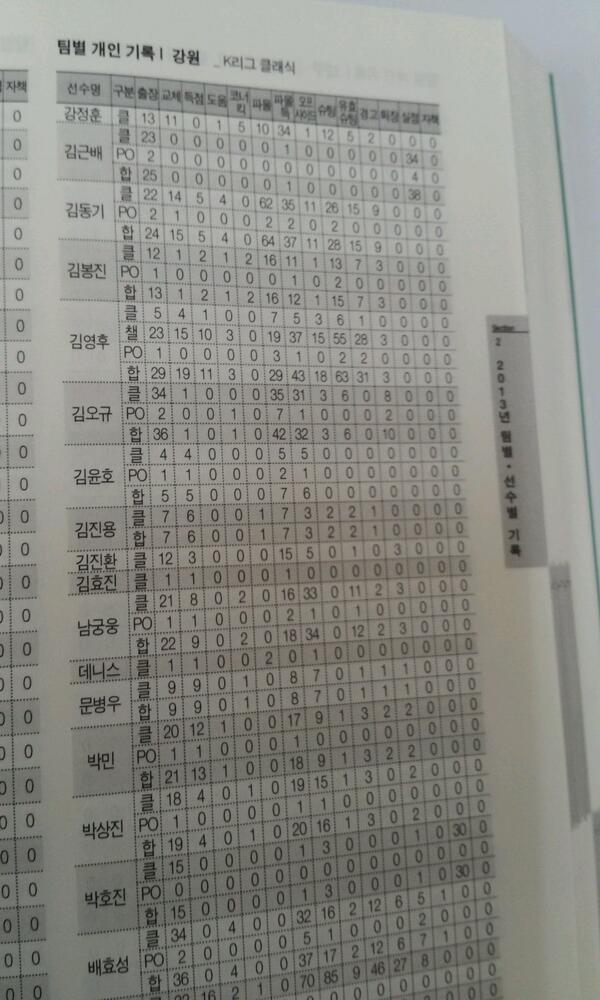 팀별 개인 기록 | 강원 _ K리그 클래식
자책
선수명 구분 출장 교체 득점 도움 코너킥 파울 파울득 오프사이드 슈팅 유효슈팅 경고 퇴장 실점 자책
강정훈 클 13 11 0 1 5 10 34 1 12 5 2 0 0 0
김근배 클 23 0 0 0 0 0 1 0 0 0 0 0 34 0
PO 2 0 0 0 0 0 0 0 0 0 0 0 4 0
합 25 0 0 0 0 0 1 0 0 0 0 0 38 0
김동기 클 22 14 5 4 0 62 35 11 26 15 9 0 0 0
PO 2 1 0 0 0 2 2 0 2 0 0 0 0 0
합 24 15 5 4 0 64 37 11 28 15 9 0 0 0
김봉진 클 12 1 2 1 2 16 11 1 13 7 3 0 0 0
PO 1 0 0 0 0 0 1 0 2 0 0 0 0 0
합 13 1 2 1 2 16 12 1 15 7 3 0 0 0
김영후 클 5 4 1 0 0 7 5 3 6 1 0 0 0 0
챌 23 15 10 3 0 19 37 15 55 28 3 0 0 0
PO 1 0 0 0 0 3 1 0 2 2 0 0 0 0
합 29 19 11 3 0 29 43 18 63 31 3 0 0 0
김오규 클 34 1 0 0 0 35 31 3 6 0 8 0 0 0
PO 2 0 0 1 0 7 1 0 0 0 2 0 0 0
합 36 1 0 1 0 42 32 3 6 0 10 0 0 0
김윤호 클 4 4 0 0 0 5 5 0 0 0 0 0 0 0
PO 1 1 0 0 0 2 1 0 0 0 0 0 0 0
합 5 5 0 0 0 7 6 0 0 0 0 0 0 0
김진용 클 7 6 0 0 1 7 3 2 2 1 0 0 0 0
합 7 6 0 0 1 7 3 2 2 1 0 0 0 0
김진환 클 12 3 0 0 0 15 5 0 1 0 3 0 0 0
김효진 클 1 1 0 0 0 1 0 0 0 0 0 0 0 0
남궁웅 클 21 8 0 2 0 16 33 0 11 2 3 0 0 0
PO 1 1 0 0 0 2 1 0 1 0 0 0 0 0
합 22 9 0 2 0 18 34 0 12 2 3 0 0 0
데니스 클 1 1 0 0 2 0 1 0 0 0 0 0 0 0
문병우 클 9 9 0 1 0 8 7 0 1 1 1 0 0 0
합 9 9 0 1 0 8 7 0 1 1 1 0 0 0
박민 클 20 12 1 0 0 17 9 1 3 2 2 0 0 0
PO 1 1 0 0 0 1 0 0 0 0 0 0 0 0
합 21 13 1 0 0 18 9 1 3 2 2 0 0 0
박상진 클 18 4 0 1 0 19 15 1 3 0 2 0 0 0
PO 1 0 0 0 0 1 1 0 0 0 0 0 0 0
합 19 4 0 1 0 20 16 1 3 0 2 0 0 0
박호진 클 15 0 0 0 0 1 3 0 0 0 1 0 30 0
PO 0 0 0 0 0 0 0 0 0 0 0 0 0 0
합 15 0 0 0 0 1 3 0 0 0 1 0 30 0
배효성 클 34 0 4 0 0 32 16 2 12 6 5 1 0 0
PO 2 0 0 0 0 5 1 0 0 0 2 0 0 0
합 36 0 4 0 0 37 17 2 12 6 7 1 0 0
16 2 1 0 70 85 9 46 27 8 0 0 0
Section
2
2013년 팀별·선수별 기록